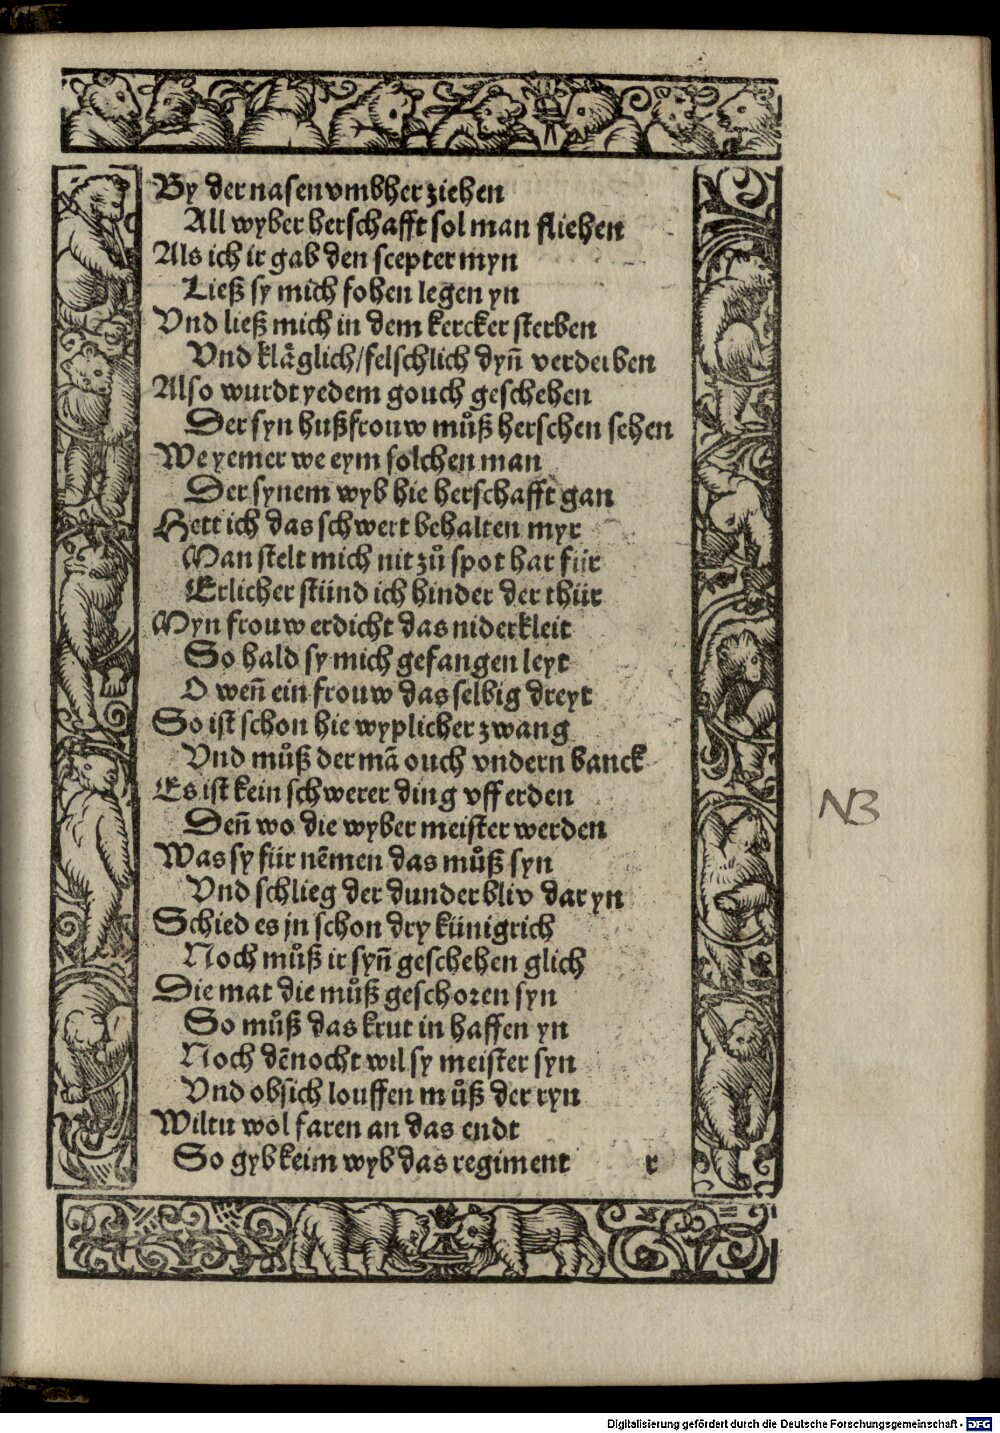 By der nasen vmbher ziehen
All wyber herschafft sol man fliehen
Als ich ir gab den scepter myn
Ließ sy mich fohen legen yn
Vnd ließ mich in dem kercker sterben
Vnd kläglich/felschlich dyñ verderben
Also wurdt yedem gouch geschehen
Der syn hußfrouw můß herschen sehen
We yemer we eym solchen man
Der synem wyb hie herschafft gan
Hett ich das schwert behalten myr
Man stelt mich nit zů spot har für
Erlicher stünd ich hinder der thür
Myn frouw erdicht das niderkleit
So bald sy mich gefangen leyt
O weñ ein frouw das selbig dreyt
So ist schon hie wyplicher zwang
Vnd můß der mã ouch vndern banck
Es ist kein schwerer ding vff erden
Deñ wo die wyber meister werden
Was sy für nẽmen das můß syn
Vnd schlieg der dunder bliv dar yn
Schied es jn schon dry künigrich
Noch můß ir syñ geschehen glich
Die mat die můß geschoren syn
So můß das krut in haffen yn
Noch dẽnocht wil sy meister syn
Vnd obsich louffen můß der ryn
Wiltu wol faren an das endt
So gyb keim wyb das regiment r
NB
Digitalisierung gefördert durch die Deutsche Forschungsgemeinschaft - DFG